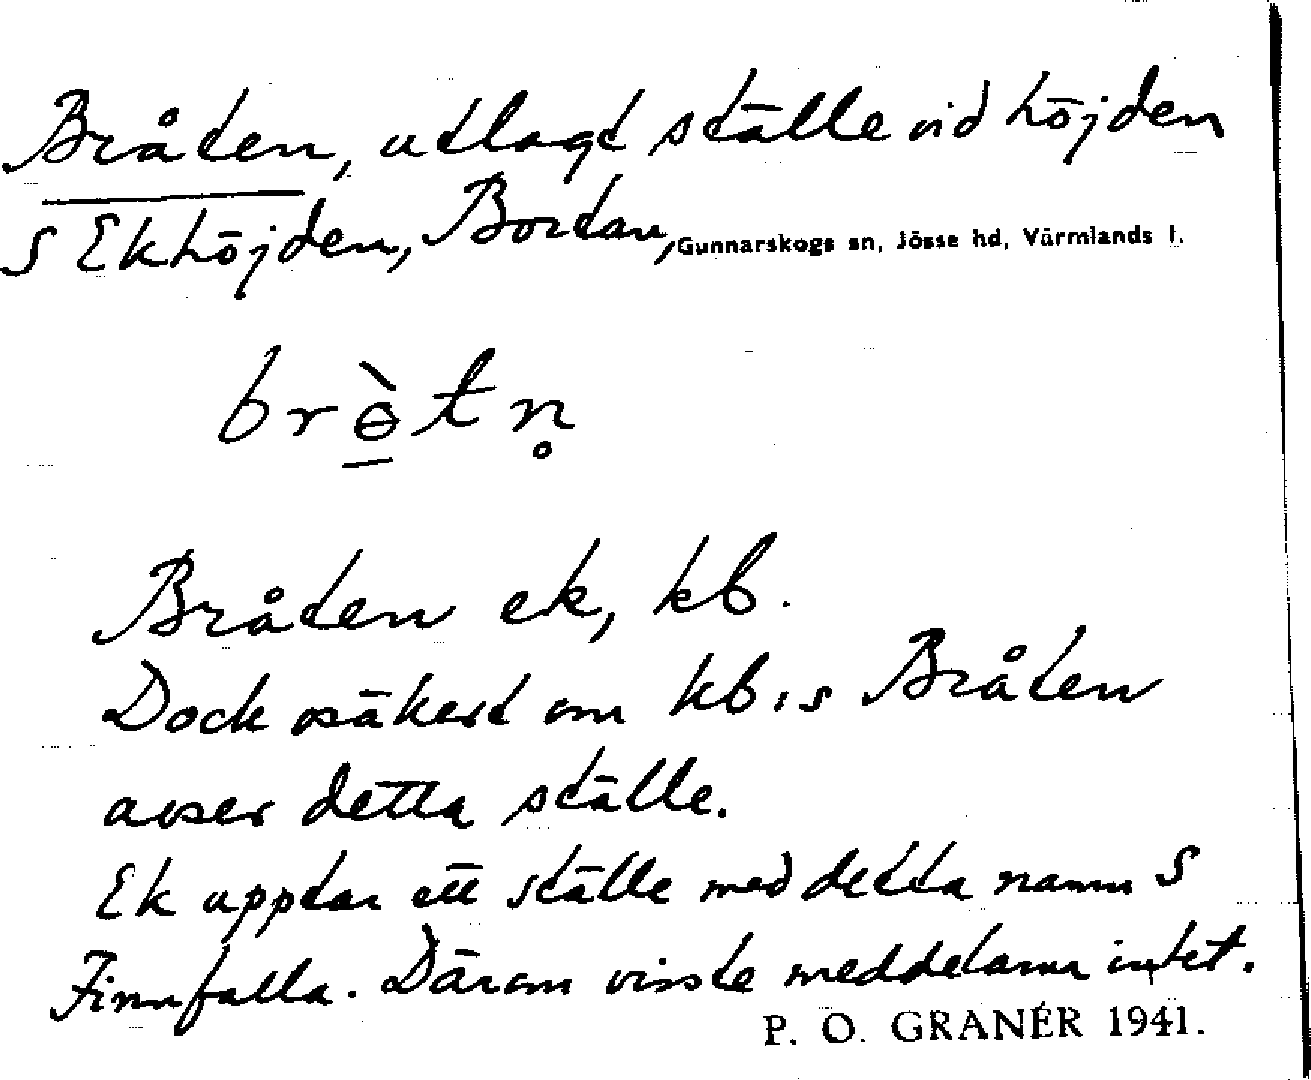 Bråten, utlagt ställe vid höjden
S Ekhöjden, Bortan, Gunnarskogs sn, Jösse hd, Värmlands l.
brɵ̀tn̥
Bråten ek, kb.
Dock osäkert om kb:s Bråten
avser detta ställe.
Ek upptar ett ställe med detta namn S
Finnfalla. Därom visste meddelarna intet.
P. O. GRANÉR 1941.